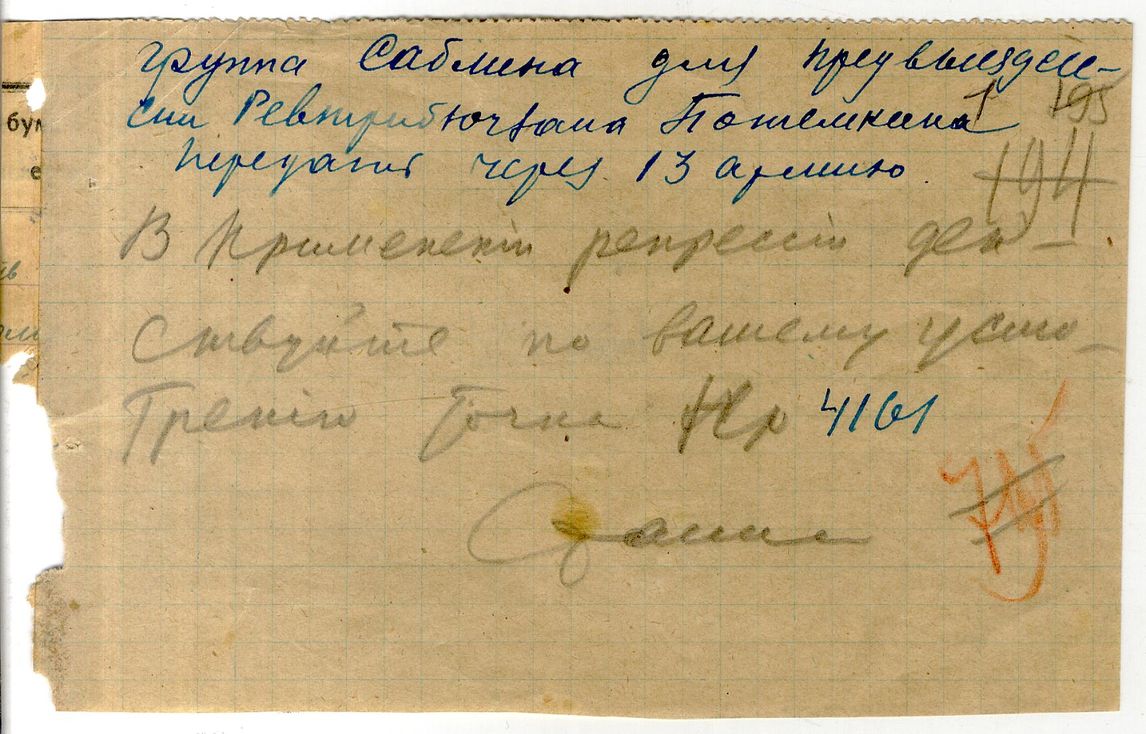 группа Саблина для предвыездсес-
сии Реввтрибючзапа Потемкина
передать через 13 армию
195
194
В применении репрессий дей-
ствуйте по вашему усмо-
трению Точка Нр 4161
бум
е